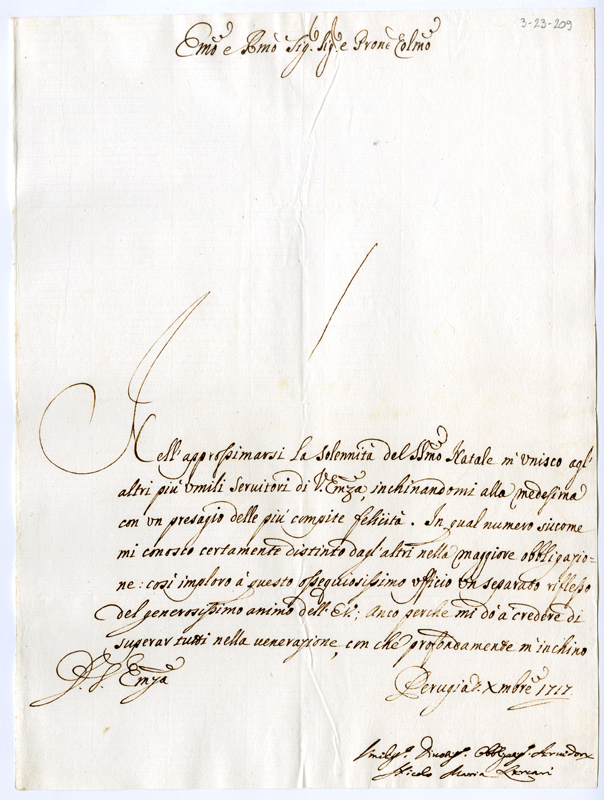 3-23-209
Emo e Rmo Sig.r Sig.r e Prone Colmo
Nell'approssimarsi la solennità del SSmo Natale m'unisco agl'
altri più umili servitori di V. Emza, inchinandomi alla medesima
con un presagio delle più compite felicità. In qual numero siccome
mi conosco certamente distinto dagl'altri nella maggiore obbligazio=
ne: così imploro à questo ossequiosissimo ufficio un separato riflesso
del generosissimo animo dell'E.V.; Anco perche mi dò à credere di
superar tutti nella venerazione, con che profondamente m'inchino
D. V. Emza
Perugia 7. Xmbre 1717.
Umiliss.o Divotiss.o Obbligatiss.o Servidore
Nicolo Maria Lercari